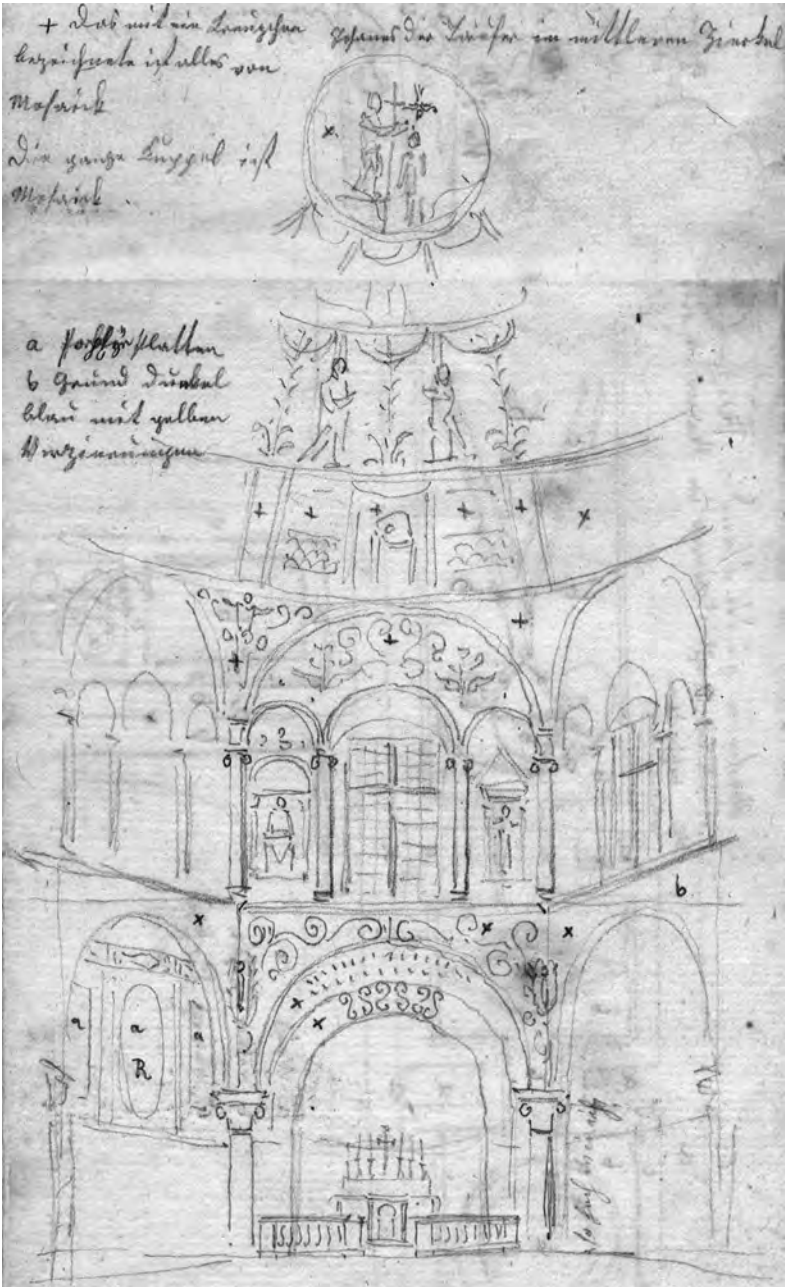 + Das mit ein Kreuzchen
bezeichnete ist alles von
Mosaick
Die ganze Kuppel ist
Mosaick.
Johanes der Täufer im mittleren Zierkel
x
a Porphyr platten
b Grund dunkel
blau mit gelben
Verzierungen
+ + + + x
+ + +
b
x x x
a a a
R
x
x